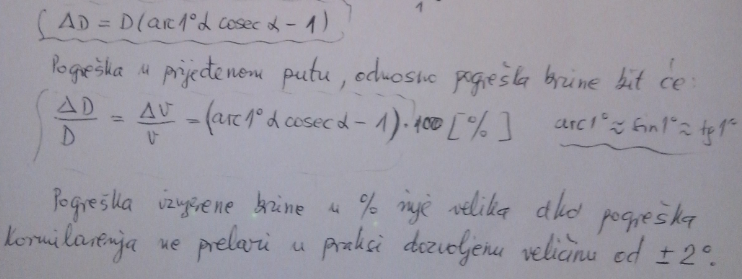 ΔD = D(arc1°α cosec α - 1)
Pogreška u prijeđenom putu, odnosno pogreška brzine bit će:
ΔD/D = ΔV/V = (arc1°α cosec α - 1)·100 [%] arc1° ≈ sin1° ≈ tg1°
Pogreška izmjerene brzine u % nije velika ako pogreška
kormilarenja ne prelazi u praksi dozvoljenu veličinu od ± 2°.